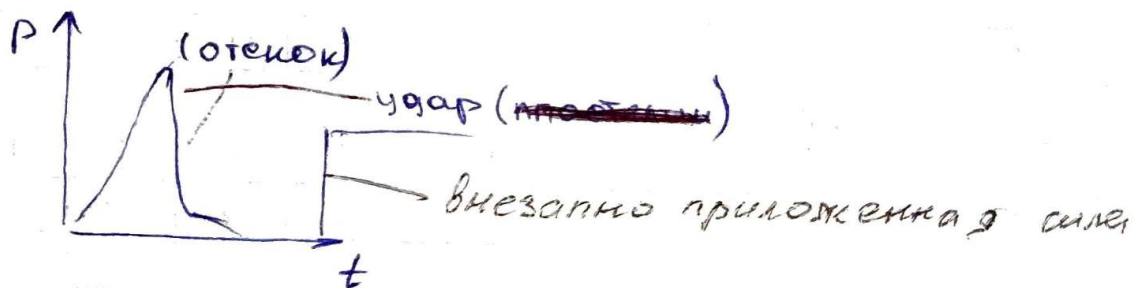 P
(отскок)
удар ( )
внезапно приложенная сила
t